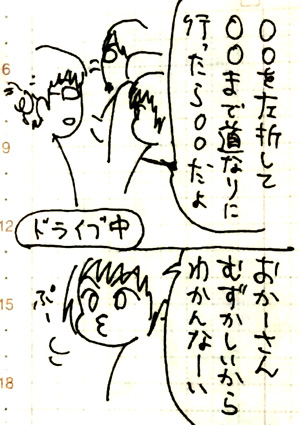 ○○を左折して
○○まで道なりに
行ったら○○だよ
ドライブ中
おかーさん
むずかしいから
わかんなーい
ぷーん
6
9
12
15
18